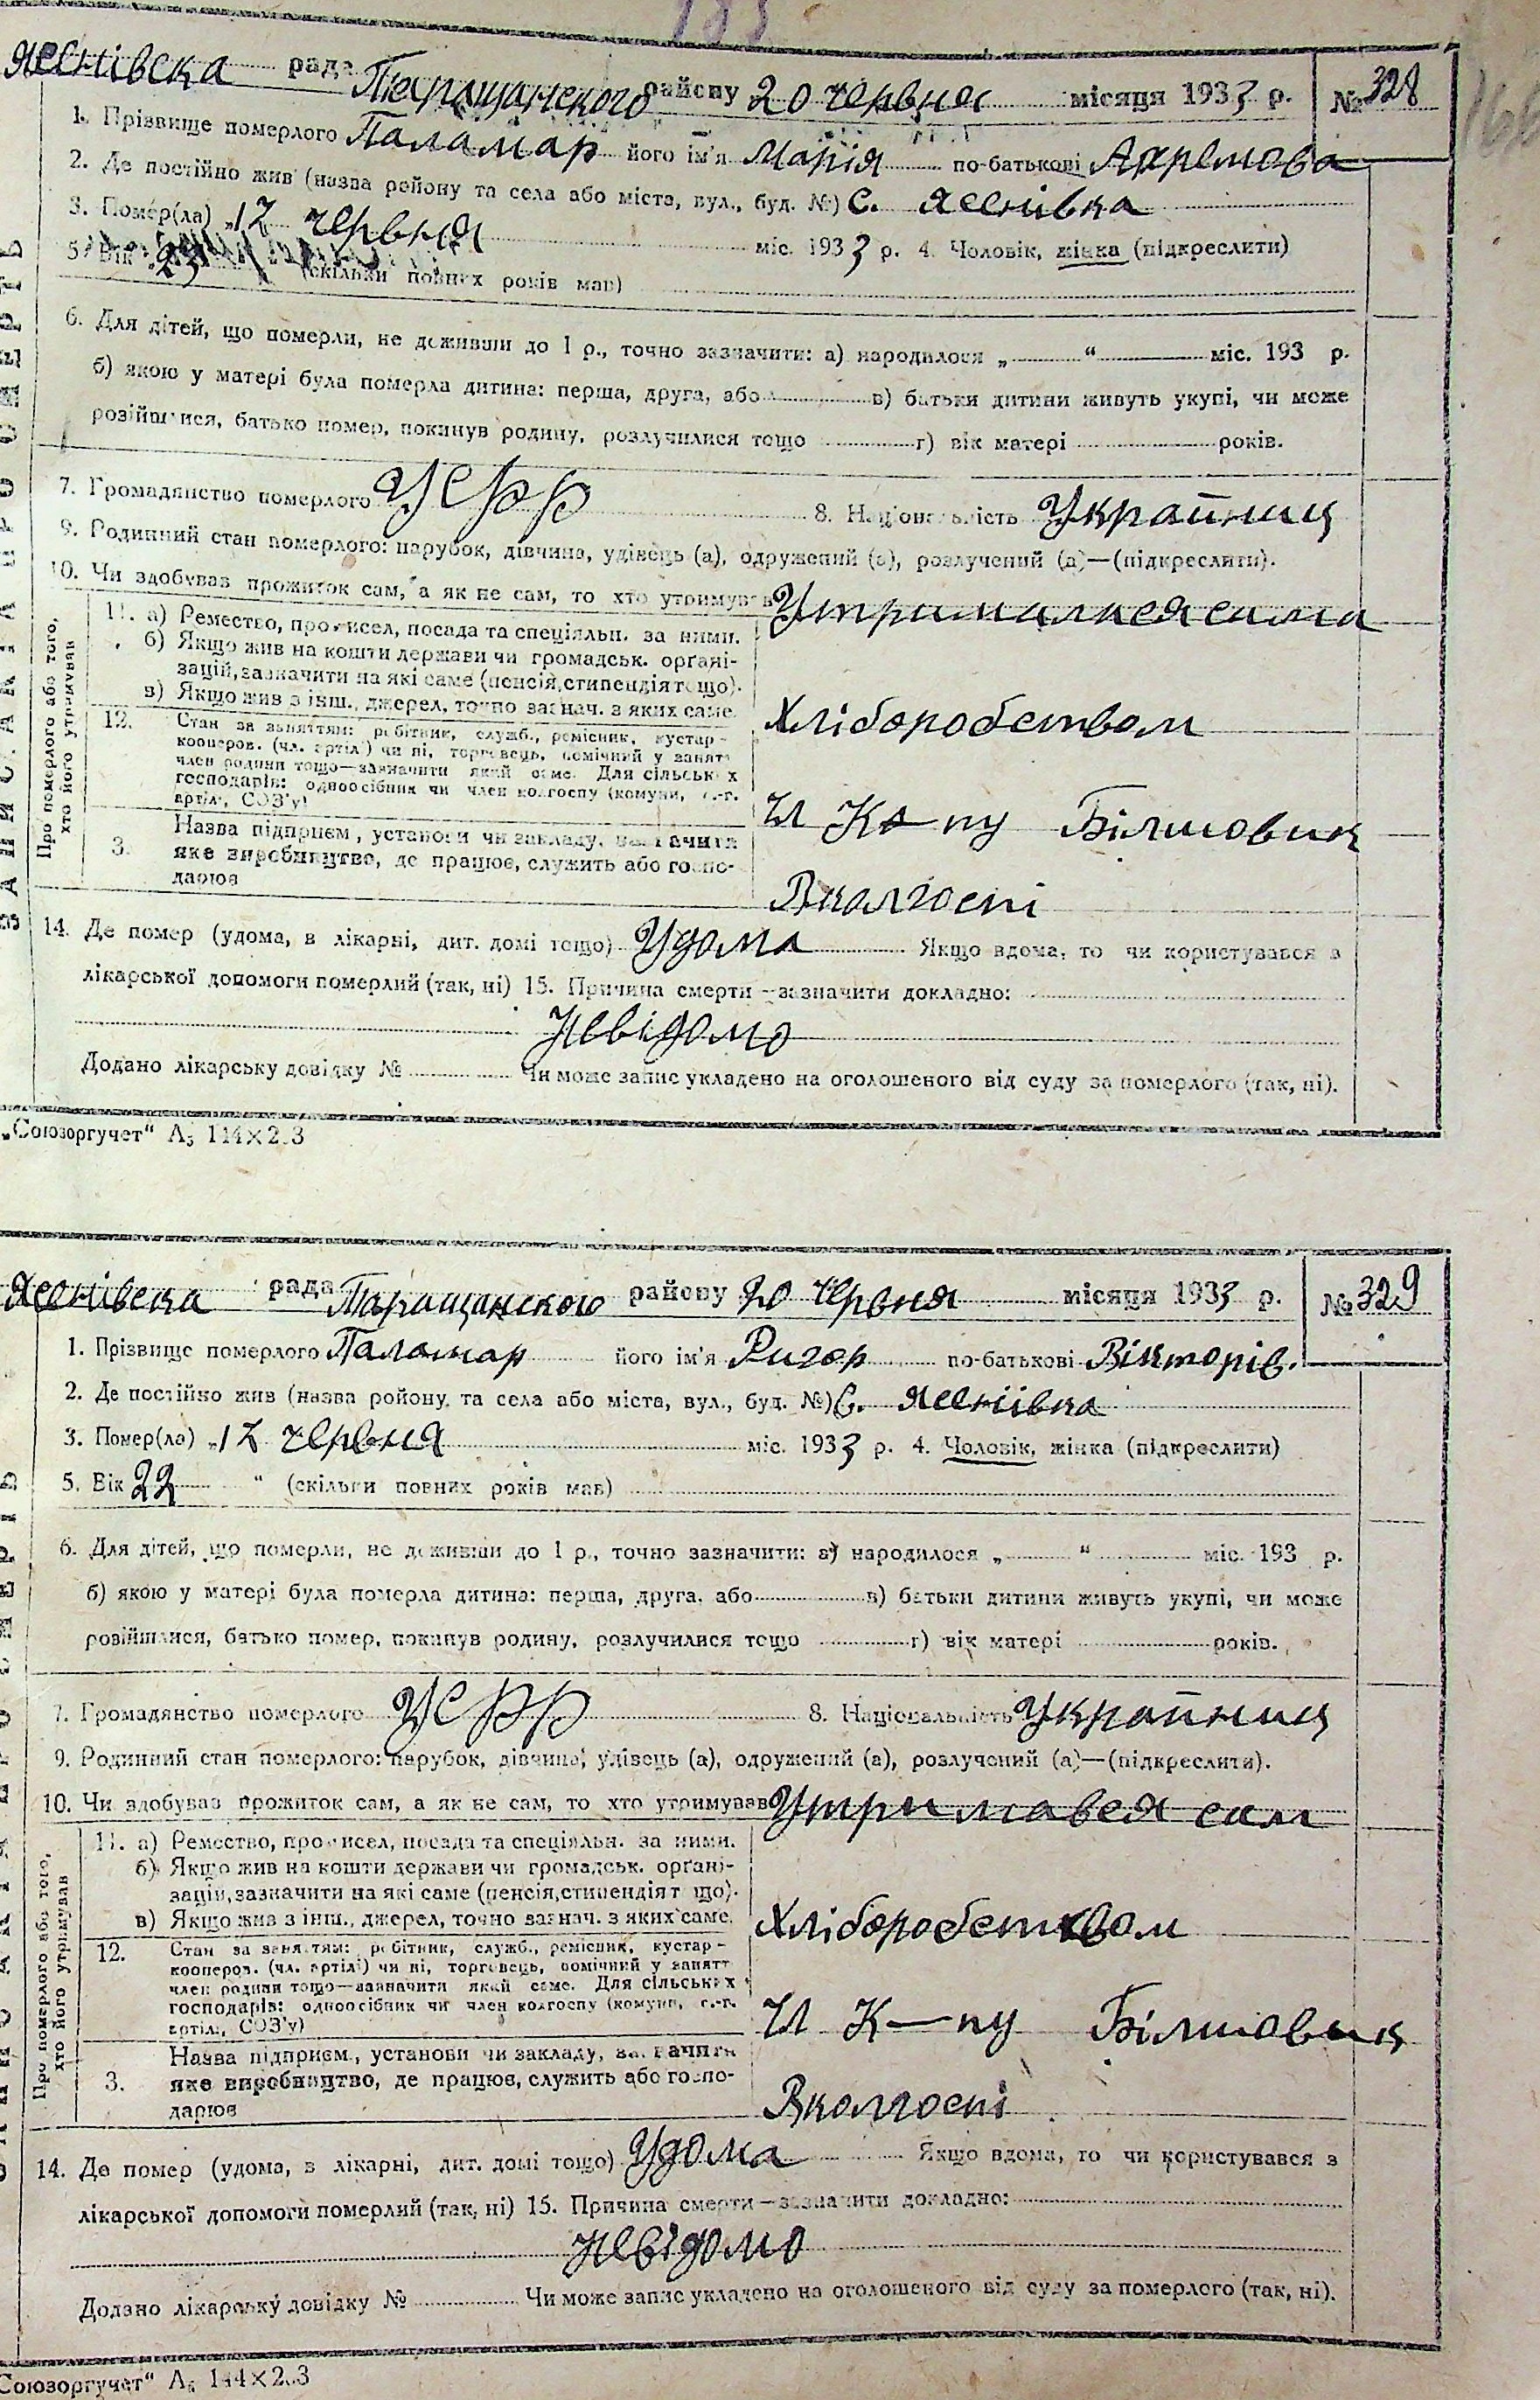 Ясенівска рада Таращанского району 20 червня місяця 1933 р. № 328
1. Прізвище померлого Паламар його ім'я Марія по-батькові
2. Де постійно жив (назва району та села або міста, вул., буд. №) С. Ясенівка
3. Помер(ла) „17 червня міс. 1933 р. 4. Чоловік, жінка (підкреслити)
5. Вік (скільки повних років мав)
6. Для дітей, що померли, не доживши до 1 р., точно зазначити: а) народилося „ “ міс. 193 р.
б) якою у матері була померла дитина: перша, друга, або в) батьки дитини живуть укупі, чи може
розійшлися, батько помер, покинув родину, розлучилися тощо г) вік матері років.
7. Громадянство померлого УСРР 8. Національність Украйниц
9. Родинний стан померлого: парубок, дівчина, удівець (а), одружений (а), розлучений (а)—(підкреслити).
10. Чи здобував прожиток сам, а як не сам, то хто утримував Утрималися сама
Про померлого або того, хто його утримував
11. а) Ремество, промисел, посада та спеціяльн. за ними.
б) Якщо жив на кошти держави чи громадськ. орґані-
зацій, зазначити на які саме (пенсія, стипендія тощо).
в) Якщо жив з інш., джерел, точно зазнач. з яких саме.
Хліборобством
12. Стан за заняттям: робітник, служб., ремісник, кустар -
кооперов. (чл. артілі) чи ні, торговець, помічний у занятт
член родини тощо—зазначити який саме. Для сільських
господарів: одноосібник чи член колгоспу (комуни, с.-г.
артілі, СОЗ'у)
Чл К—пу Білшовик
3. Назва підприєм., установи чи закладу, зазначити
яке виробництво, де працює, служить або госпо-
дарює
Вколгоспі
14. Де помер (удома, в лікарні, дит. домі тощо) Удома Якщо вдома, то чи користувався з
лікарської допомоги померлий (так, ні) 15. Причина смерти—зазначити докладно:
Невідомо
Додано лікарську довідку № Чи може запис укладено на оголошеного від суду за померлого (так, ні).
„Союзоргучет“
Ясенівска рада Таращанского району 20 червня місяця 1933 р. № 329
1. Прізвище померлого Паламар його ім'я Ригор по-батькові Вікторів.
2. Де постійно жив (назва ройону та села або міста, вул., буд. №) С. Ясенівка
3. Помер(ла) „17 червня міс. 1933 р. 4. Чоловік, жінка (підкреслити)
5. Вік 22 “ (скільки повних років мав)
6. Для дітей, що померли, не доживши до 1 р., точно зазначити: а) народилося „ “ міс. 193 р.
б) якою у матері була померла дитина: перша, друга, або в) батьки дитини живуть укупі, чи може
розійшлися, батько помер, покинув родину, розлучилися тощо г) вік матері років.
7. Громадянство померлого УСРР 8. Національність Украйниц
9. Родинний стан померлого: парубок, дівчина, удівець (а), одружений (а), розлучений (а)—(підкреслити).
10. Чи здобував прожиток сам, а як не сам, то хто утримував Утримався сам
Про померлого або того, хто його утримував
11. а) Ремество, промисел, посада та спеціяльн. за ними.
б) Якщо жив на кошти держави чи громадськ. орґані-
зацій, зазначити на які саме (пенсія, стипендія тощо).
в) Якщо жив з інш., джерел, точно зазнач. з яких саме.
Хліборобством
12. Стан за заняттям: робітник, служб., ремісник, кустар -
кооперов. (чл. артілі) чи ні, торговець, помічний у занятт
член родини тощо—зазначити який саме. Для сільських
господарів: одноосібник чи член колгоспу (комуни, с.-г.
артілі, СОЗ'у)
Чл К—пу Білшовик
3. Назва підприєм., установи чи закладу, зазначити
яке виробництво, де працює, служить або госпо-
дарює
Вколгоспі
14. Де помер (удома, в лікарні, дит. домі тощо) Удома Якщо вдома, то чи користувався з
лікарської допомоги померлий (так, ні) 15. Причина смерти—зазначити докладно:
Невідомо
Додано лікарську довідку № Чи може запис укладено на оголошеного від суду за померлого (так, ні).
Союзоргучет“